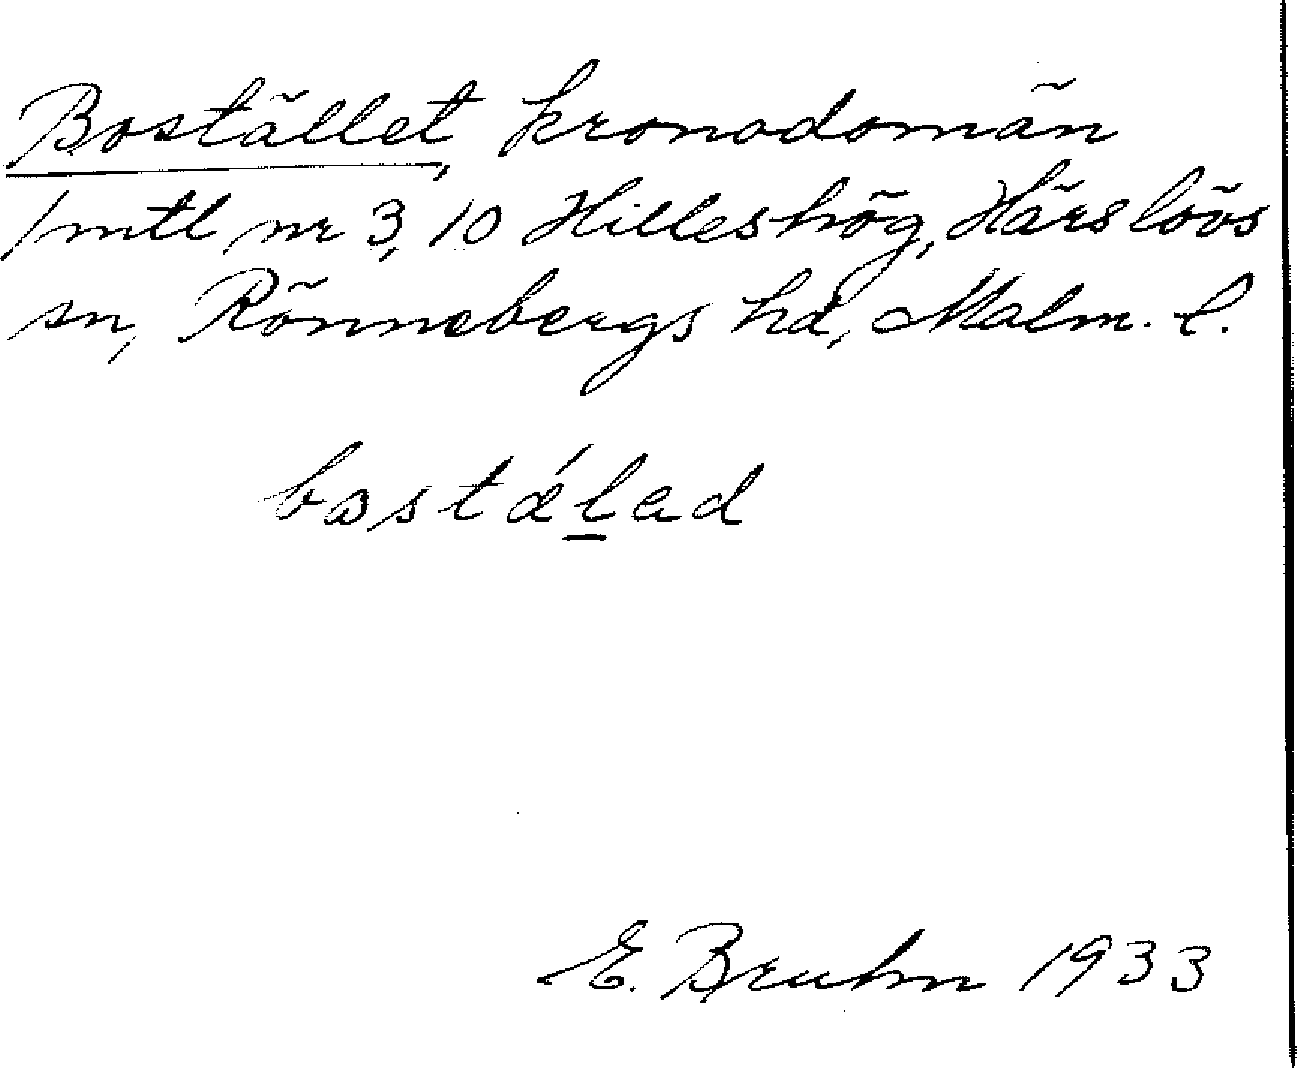 Bostället, kronodomän
1 mtl nr 3, 10 Hilleshög, Härslövs
sn, Rönnebergs hd, Malm. l.
bostǽlad
E. Bruhn 1933